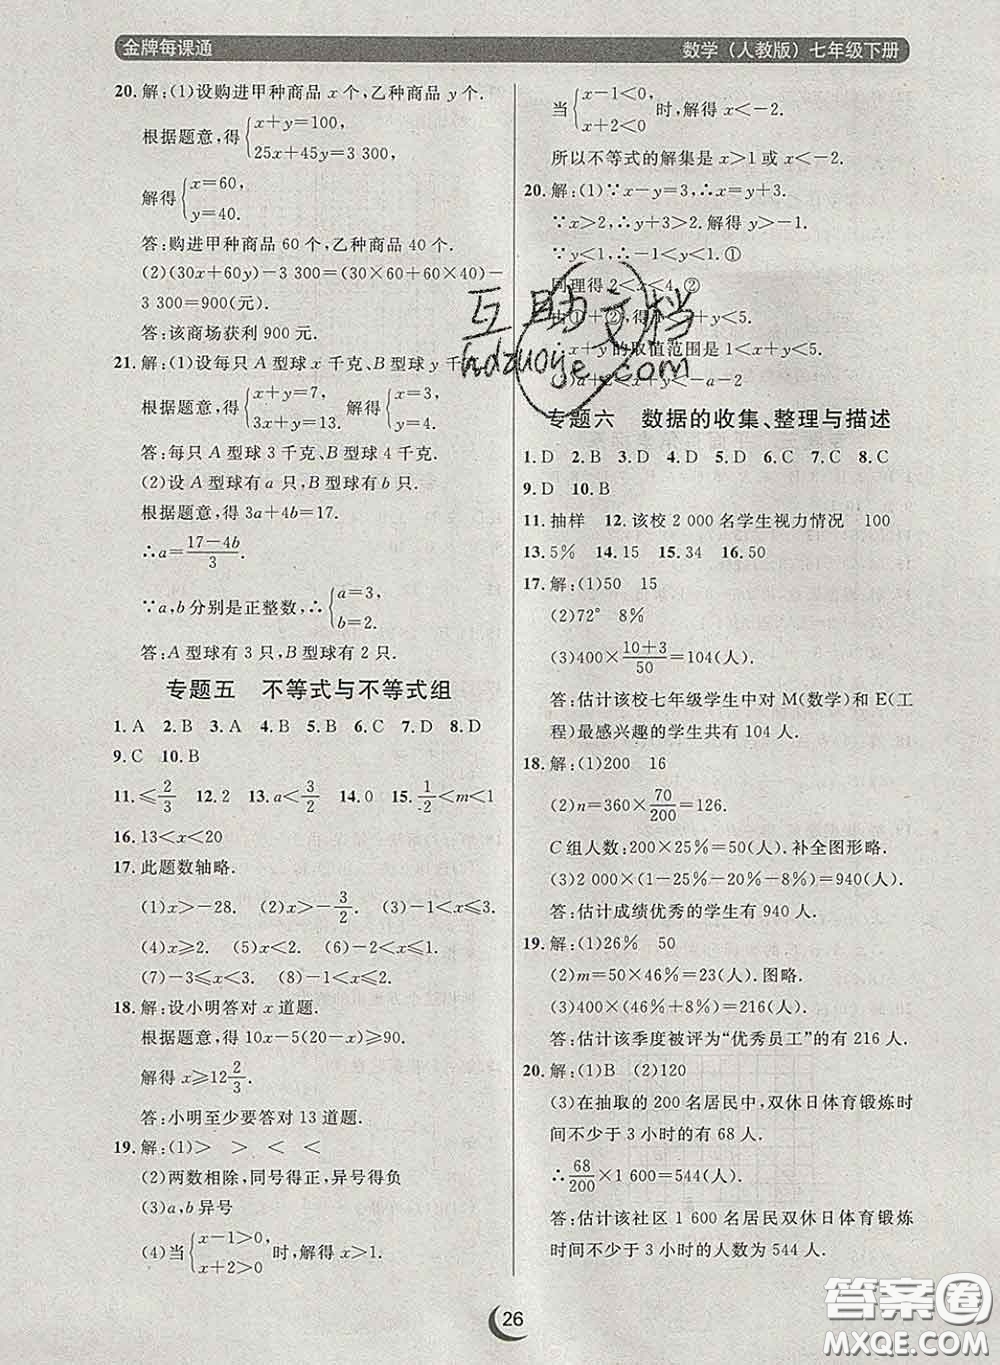 金牌每课通
数学（人教版）七年级下册
20. 解:(1)设购进甲种商品 x 个,乙种商品 y 个.
根据题意,得{x+y=100,
25x+45y=3 300,
解得{x=60,
y=40.
答:购进甲种商品 60 个,乙种商品 40 个.
(2)(30x+60y)-3 300=(30×60+60×40)-
3 300=900(元).
答:该商场获利 900 元.
21. 解:(1)设每只 A 型球 x 千克、B 型球 y 千
根据题意,得{x+y=7, 解得{x=3,
3x+y=13. y=4.
答:每只 A 型球 3 千克、B 型球 4 千克.
(2)设 A 型球有 a 只,B 型球有 b 只.
根据题意,得 3a+4b=17.
∴a=(17-4b)/3.
∵a,b 分别是正整数,∴{a=3,
b=2.
答:A 型球有 3 只,B 型球有 2 只.
专题五 不等式与不等式组
1. A 2. B 3. A 4. B 5. B 6. C 7. D 8. D
9. C 10. B
11. ≤2/3 12. 2 13. a<3/2 14. 0 15. 1/2<m<1
16. 13<x<20
17. 此题数轴略.
(1)x>-28. (2)x>-3/2. (3)-1<x≤3.
(4)x≥2. (5)x≤2. (6)-2<x<1.
(7)-3≤x<3. (8)-1≤x<2.
18. 解:设小明答对 x 道题.
根据题意,得 10x-5(20-x)≥90.
解得 x≥12 2/3.
答:小明至少要答对 13 道题.
19. 解:(1)> > < <
(2)两数相除,同号得正,异号得负
(3)a,b 异号
(4)当{x-1>0, 时,解得 x>1.
x+2>0
当{x-1<0, 时,解得 x<-2.
x+2<0
所以不等式的解集是 x>1 或 x<-2.
20. 解:(1)∵x-y=3,∴x=y+3.
∵x>2,∴y+3>2.解得 y>-1.
∵y<1,∴-1<y<1.①
同理得 2<x<4.②
由①+②,得 1<x+y<5.
∴x+y 的取值范围是 1<x+y<5.
<x+y<-a-2
专题六 数据的收集、整理与描述
1. D 2. B 3. D 4. D 5. D 6. C 7. C 8. C
9. D 10. B
11. 抽样 12. 该校 2 000 名学生视力情况 100
13. 5% 14. 15 15. 34 16. 50
17. 解:(1)50 15
(2)72° 8%
(3)400×(10+3)/50=104(人).
答:估计该校七年级学生中对 M(数学)和 E(工
程)最感兴趣的学生共有 104 人.
18. 解:(1)200 16
(2)n=360×70/200=126.
C 组人数:200×25%=50(人).补全图形略.
(3)2 000×(1-25%-20%-8%)=940(人).
答:估计成绩优秀的学生有 940 人.
19. 解:(1)26% 50
(2)m=50×46%=23(人).图略.
(3)400×(46%+8%)=216(人).
答:估计该季度被评为“优秀员工”的有 216 人.
20. 解:(1)B (2)120
(3)在抽取的 200 名居民中,双休日体育锻炼时
间不少于 3 小时的有 68 人.
∴68/200×1 600=544(人).
答:估计该社区 1 600 名居民双休日体育锻炼
时间不少于 3 小时的人数为 544 人.
26
互助文档
hdzuoye.com
答案圈
MXQE.COM